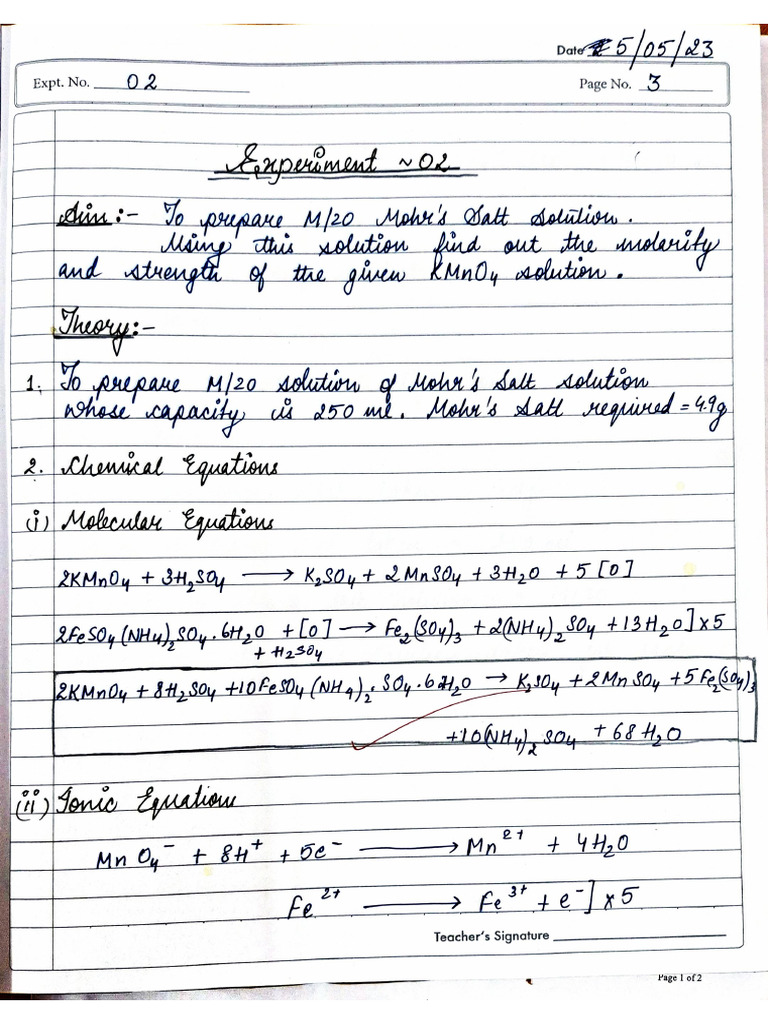 Date 5/05/23
Expt. No. 02
Page No. 3
Experiment ~02
Aim:- To prepare M/20 Mohr's Salt solution.
Using this solution find out the molarity
and strength of the given KMnO₄ solution.
Theory:-
1. To prepare M/20 solution of Mohr's Salt solution
whose capacity is 250 ml. Mohr's Salt required = 4.9g
2. Chemical Equations
(i) Molecular Equations
2KMnO₄ + 3H₂SO₄ ⟶ K₂SO₄ + 2MnSO₄ + 3H₂O + 5[O]
2FeSO₄(NH₄)₂SO₄·6H₂O + [O] ⟶ Fe₂(SO₄)₃ + 2(NH₄)₂SO₄ + 13H₂O] × 5
+ H₂SO₄
2KMnO₄ + 8H₂SO₄ + 10FeSO₄(NH₄)₂·SO₄·6H₂O → K₂SO₄ + 2MnSO₄ + 5Fe₂(SO₄)₃
+10(NH₄)₂SO₄ + 68H₂O
(ii) Ionic Equations
MnO₄⁻ + 8H⁺ + 5e⁻ ⟶ Mn²⁺ + 4H₂O
Fe²⁺ ⟶ Fe³⁺ + e⁻] × 5
Teacher's Signature
Page 1 of 2